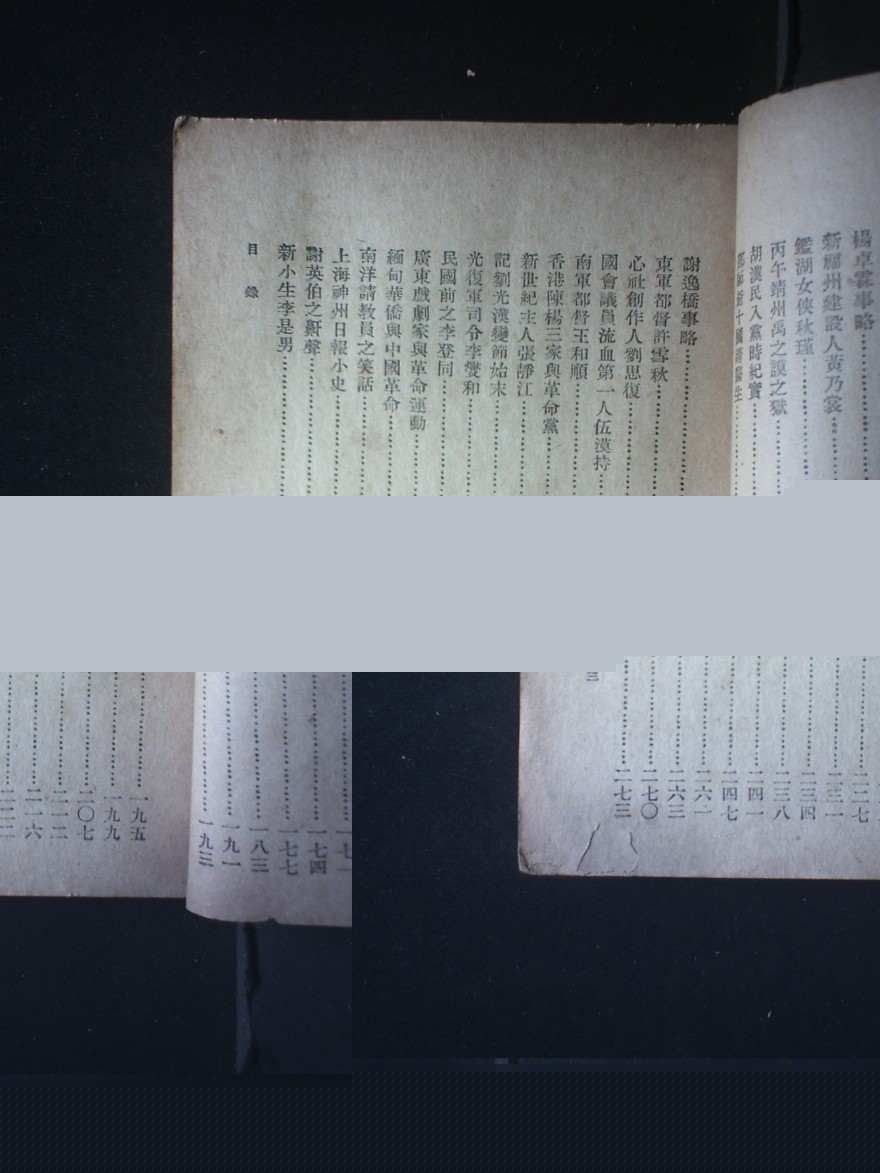 楊卓霖事略
新福州建設人黃乃裳
鑑湖女俠秋瑾
丙午靖州禹之謨之獄
胡漢民入黨時紀實
謝逸橋事略
東軍都督許雪秋
心社創作人劉思復
國會議員流血第一人伍漢持
南軍都督王和順
香港陳楊三家與革命黨
新世紀主人張靜江
記劉光漢變節始末
光復軍司令李燮和
民國前之李登同
廣東戲劇家與革命運動
緬甸華僑與中國革命
南洋請教員之笑話
上海神州日報小史
謝英伯之鼾聲
新小生李是男
目錄
一七四
一七七
一八三
一九一
一九三
一九五
一九九
二〇七
二一二
二一六
二二七
二三一
二三四
二三八
二四一
二四七
二六一
二六三
二七〇
二七三
三